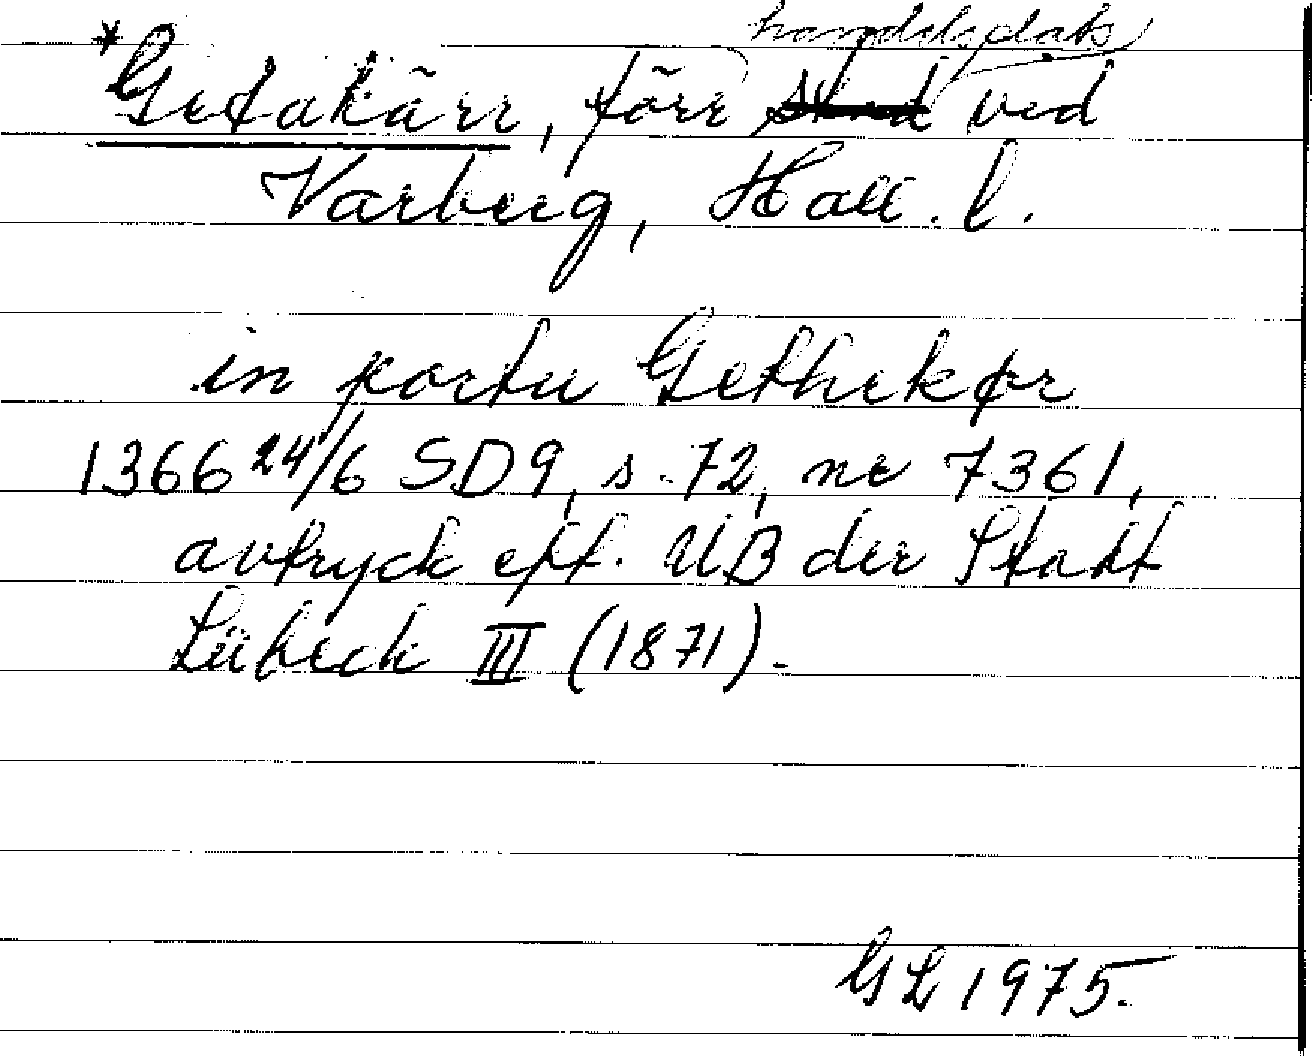 handelsplats
*Getakärr, förr stad ved
Varberg, Hall. l.
in portu Gethekør
1366 24/6 SD9, s. 72, nr 7361,
avtryck eft. UB der Stadt
Lübeck III (1871).
GL 1975.